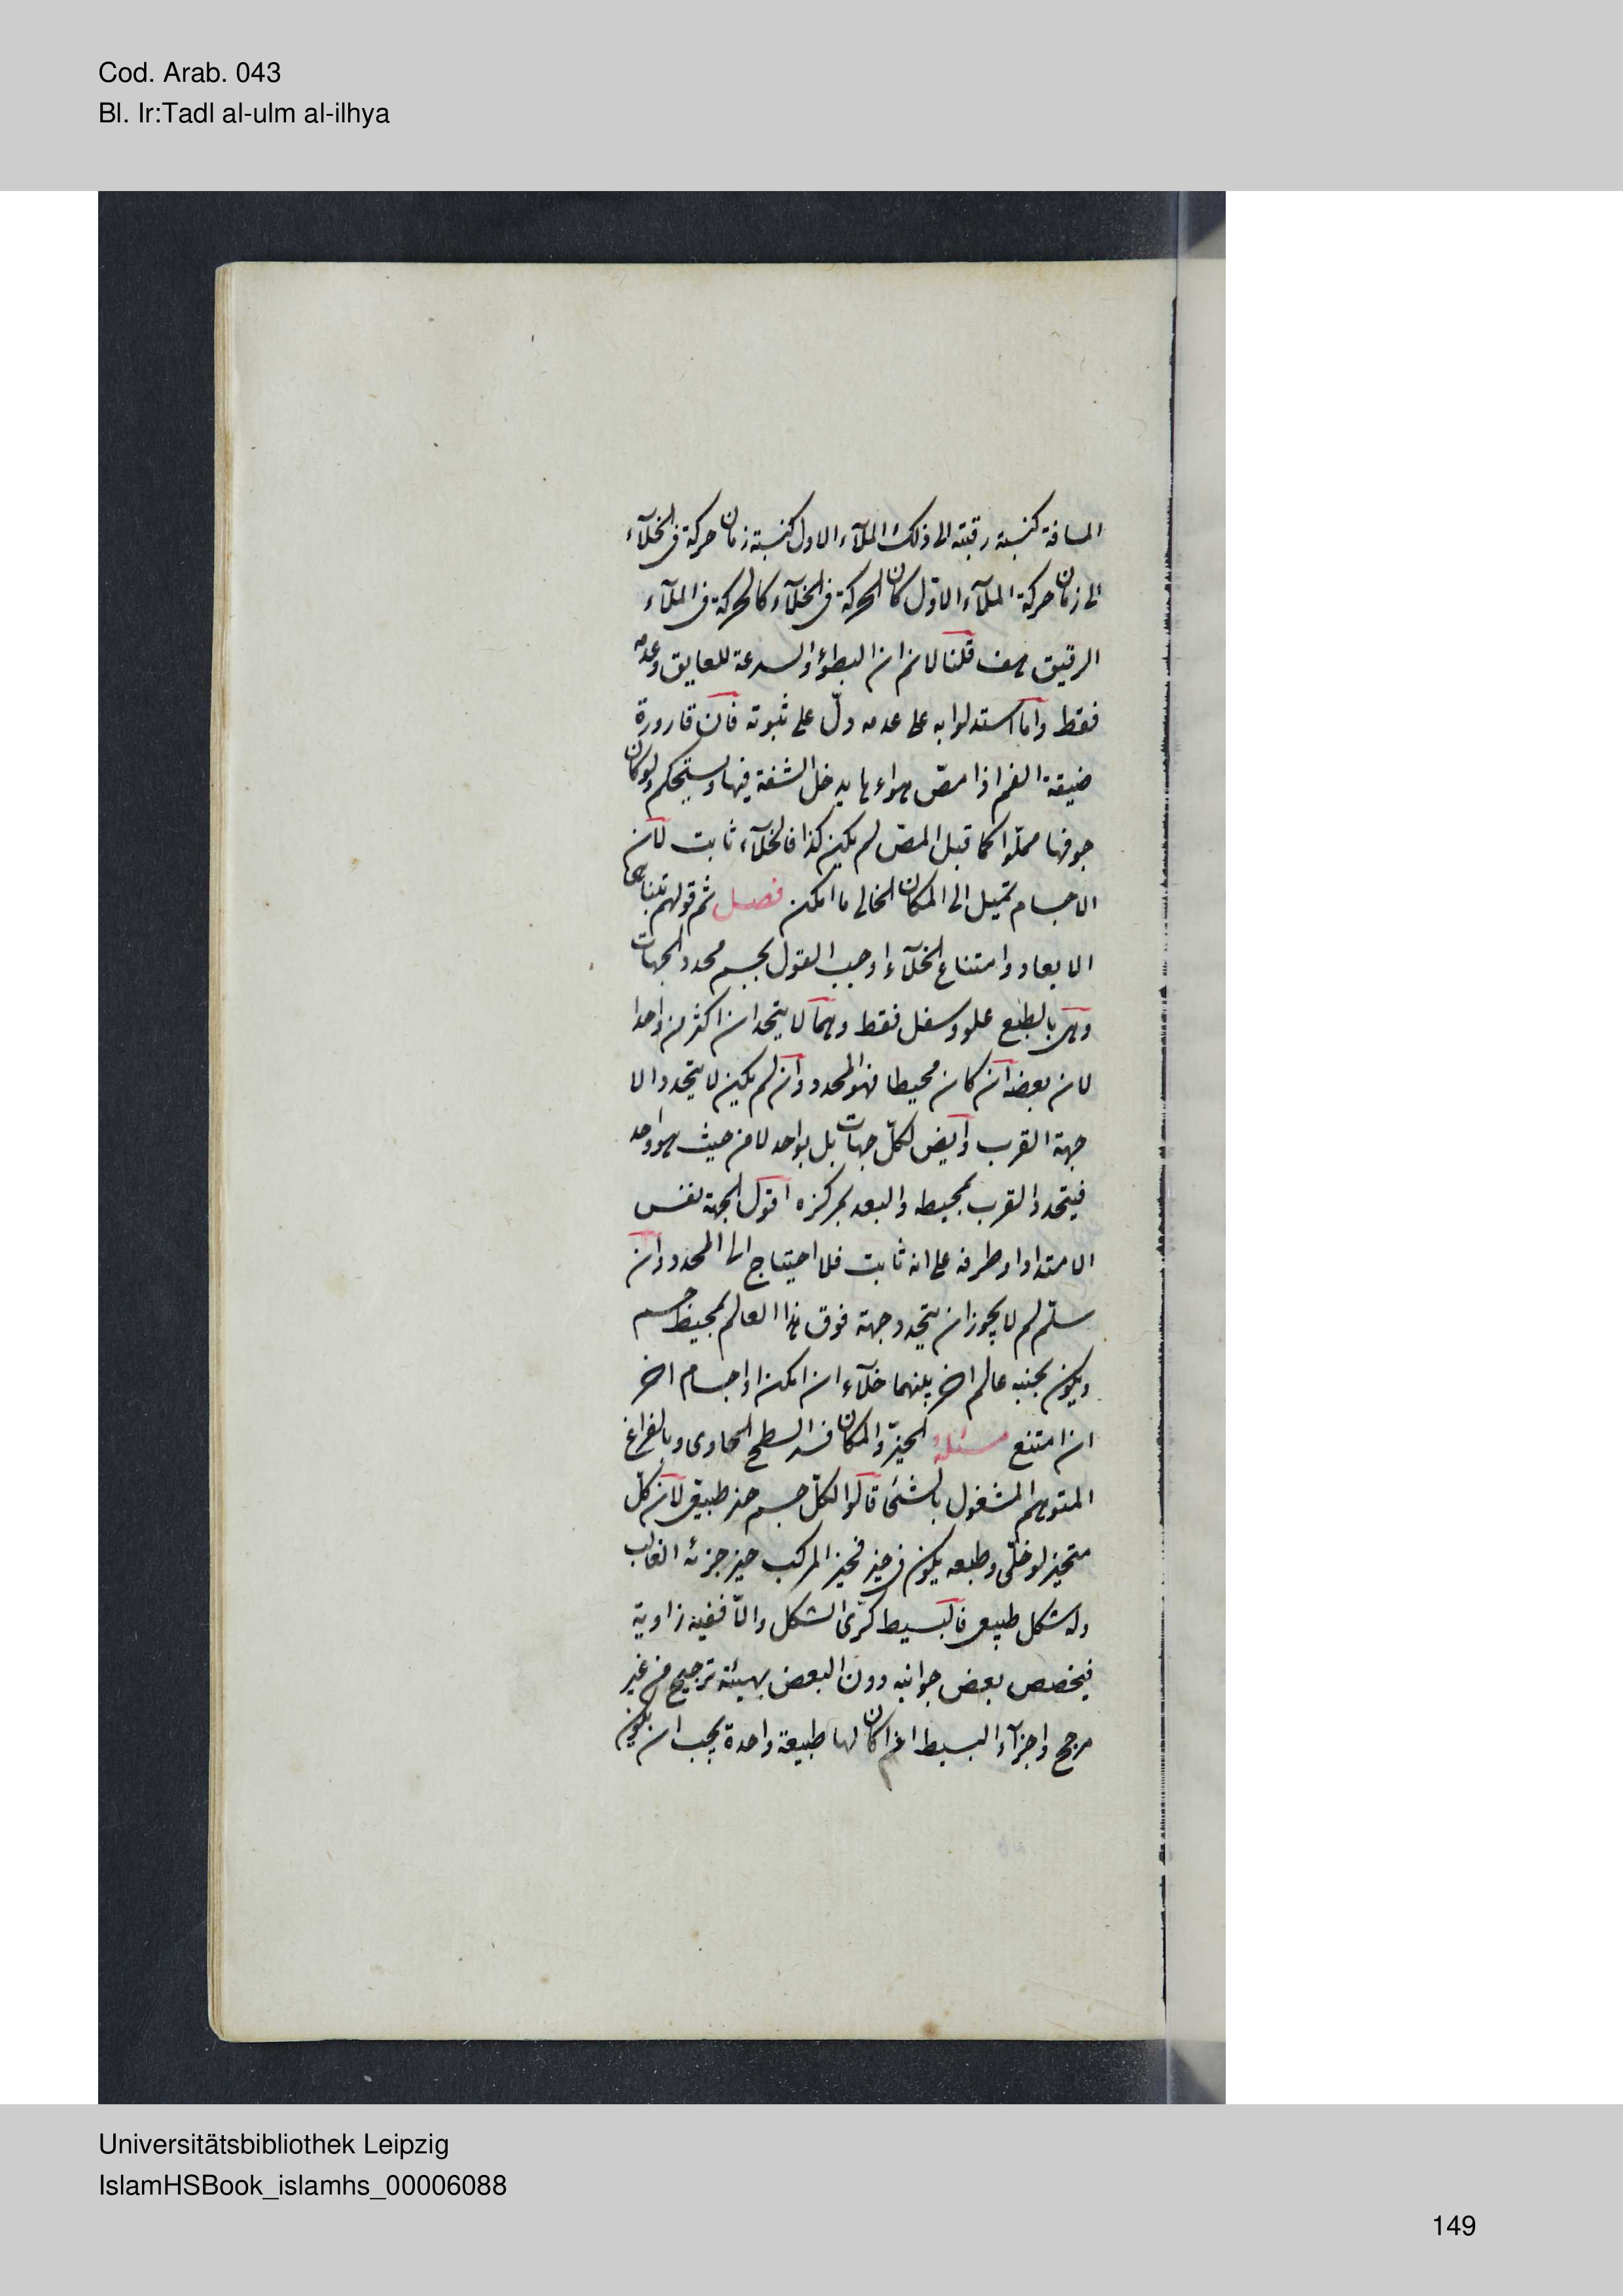 Cod. Arab. 043
Bl. Ir:Tadl al-ulm al-ilhya
المسافة كنسبة رقته الى ذلك الملآء الاول كنسبة زمان حركة فى الخلآء
الى زمان حركة الملآء الاوّل كان الحركة فى الخلآء كالحركة فى الملآء
الرقيق هف قلنا لانم ان البطؤ والسرعة للعايق وعدمه
فقط وامّا استدلوا به على عدمه دلّ على ثبوته فان قارورة
ضيقة الفم اذا مصّ هواءها يدخل الشفة فيها ويستحكم ولو كان
جوفها مملوّا كما قبل المصّ لم يكن كذا فالخلآء ثابت لان
الاجسام تميل الى المكان الخالى ما امكن فصل ثم قولهم بتناهى
الابعاد وامتناع الخلآء اوجب القول بجسم محدد الجهات
وهى بالطبع علو وسفل فقط وهما لا يتحدان اكثر من واحدا
لان بعضه ان كان محيطا فهو المحدد وان لم يكن لا يتحدد الا
جهة القرب وايض لكلّ جهات بل بواحد لا من حيث هو واحد
فيتحدد القرب بمحيطه والبعد بمركزه اقول الجهة نفس
الامتداد او طرفه على انه ثابت فلا احتياج الى المحدد وان
سلّم لم لا يجوز ان يتحدد جهة فوق هذا العالم بمحيط جسم
ويكون بجنبه عالم اخر بينهما خلآء ان امكن او اجسام اخر
ان امتنع مسئلة الحيّز والمكان فسر السطح الحاوى وبالفراغ
المتوهم المشغول بالشئ قالوا لكلّ جسم حيز طبيعى لان كلّ
متحيز لو خلّى وطبعه يكون فى حيز فحيز المركب حيز جزئه الغالب
وله شكل طبيعى فالبسيط كرّى الشكل والّا ففيه زاوية
فيخصص بعض جوانبه دون البعض بهيئة ترجيح من غير
مرجح واجزآء البسيط اذا كان لها طبيعة واحدة يجب ان يكون
Universitätsbibliothek Leipzig
IslamHSBook_islamhs_00006088
149